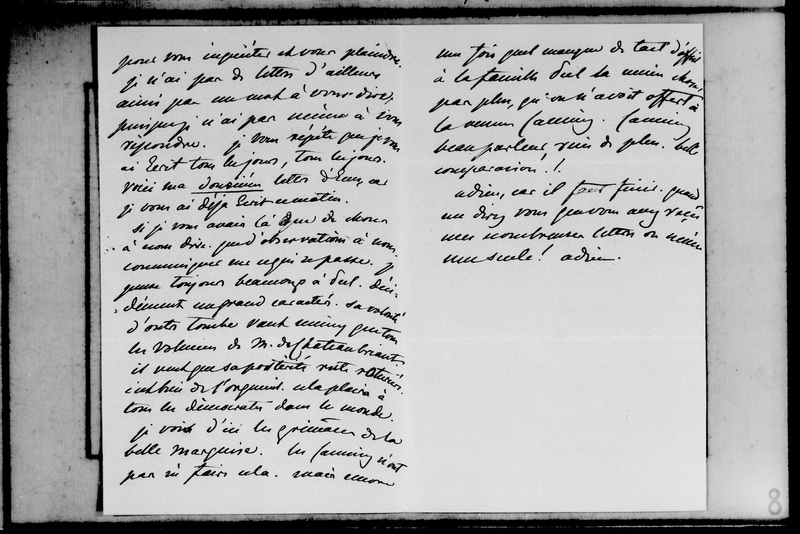 pour vous inquiéter et vous plaindre.
je n'ai pas de lettres d'ailleurs
ainsi pas un mot à vous dire,
puisque je n'ai pas même à vous
répondre. je vous répète que je vous
ai écrit tous les jours, tous les jours.
voici ma douzième lettre d'Ems, car
je vous ai déjà écrit ce matin.
si je vous avais là que de choses
à nous dire. que d'observations à nous
communiquer sur ce qui se passe. je
pense toujours beaucoup à Peel. déci-
dément un grand caractère. sa volonté
d'outre tombe vaut mieux que tous
les volumes de M. de Chateaubriant.
il veut que sa postérité reste roturière.
c'est bien de l'orgueil. cela plaira à
tous les démocrates dans le monde.
je vois d'ici les grimaces de la
belle Marquise. les Canning n'ont
pas su faire cela. mais encore
une fois quel manque de tact d'offrir
à la famille Peel la même chose,
pas plus, qu'on n'avait offert à
la veuve Canning. Canning
beau parleur rien de plus. belle
comparaison !!
adieu, car il faut finir. quand
me direz vous que vous avez reçu
mes nombreuses lettres ou même
une seule ! adieu.
8